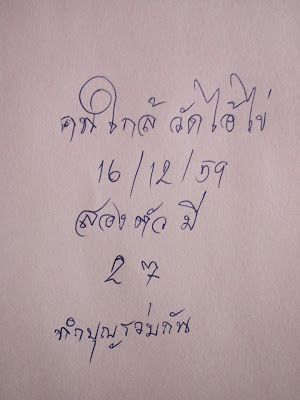 คนใกล้ วัดไอ้ไข่
16/12/59
สองตัว มี
2 7
ทำบุญร่วมกัน